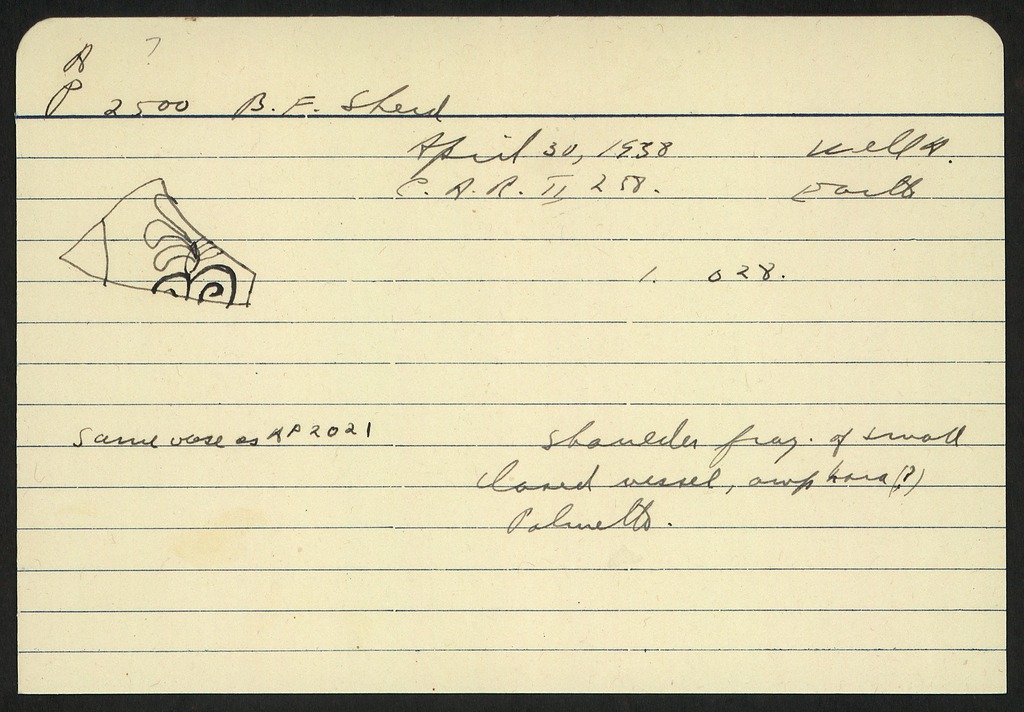 A ?
P 2500 B.F. Sherd
April 30, 1938 Well A.
C.A.R. II 258.
1. 028.
Same vase as AP 2021
Shoulder frag. of small
closed vessel, amphora(?)
Palmette.